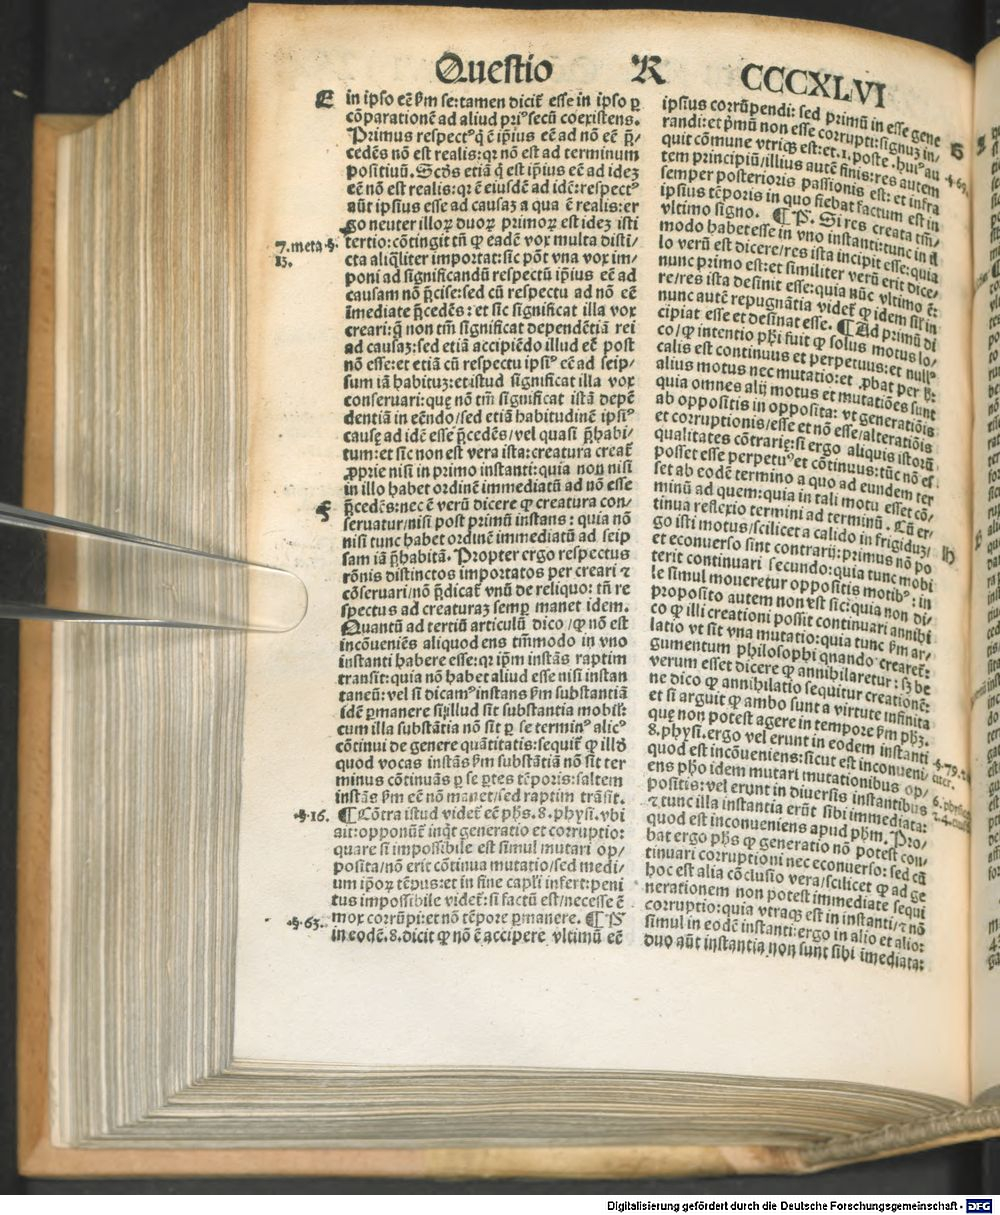 Questio R CCCXLVI
E in ipso eē ẜm se: tamen dicit̄ esse in ipso ꝑ
cōparationē ad aliud priꝰ secū coexistens.
Primus respectꝰ q̄ ē ip̄ius eē ad nō eē p̄/
cedēs nō est realis: qꝛ nō est ad terminum
positiuū. Scd̄s etiā q̄ est ip̄ius eē ad ideꝫ
eē nō est realis: qꝛ ē eiusdē ad idē: respectꝰ
aūt ipsius esse ad causaꝫ a qua ē realis: er
go neuter illoꝝ duoꝝ primoꝝ est ideꝫ isti
7. meta. §.
13.
tertio: cōtingit tn̄ ꝙ eadē vox multa disti/
cta aliq̄liter importat: sic pōt vna vox im/
poni ad significandū respectū ip̄ius eē ad
causam nō p̄cise: sed cū respectu ad nō eē
īmediate p̄cedēs: et sic significat illa vox
creari: q̄ non tm̄ significat dependētiā rei
ad causaꝫ: sed etiā accipiēdo illud eē post
nō esse: et etiā cū respectu ipsiꝰ eē ad seip/
sum iā habituꝫ: et istud significat illa vox
conseruari: que nō tm̄ significat istā depē
dentiā in eēndo/sed etiā habitudinē ipsiꝰ
cause ad idē esse p̄cedēs/vel quasi p̄habi/
tum: et sic non est vera ista: creatura creat̄
ꝓprie nisi in primo instanti: quia non nisi
in illo habet ordinē immediatū ad nō esse
F p̄cedēs: nec ē verū dicere ꝙ creatura con/
seruatur/nisi post primū instans: quia nō
nisi tunc habet ordinē immediatū ad seip
sam iā p̄habitā. Propter ergo respectus
rōnis distinctos importatos per creari ⁊
cōseruari/nō p̄dicat̄ vnū de reliquo: tn̄ re
spectus ad creaturaꝫ semꝑ manet idem.
Quantū ad tertiū articulū dico/ꝙ nō est
incōueniēs aliquod ens tm̄modo in vno
instanti habere esse: qꝛ ip̄m instās raptim
transit: quia nō habet aliud esse nisi instan
taneū: vel si dicamꝰ instans ẜm substantiā
idē ꝑmanere si illud sit substantia mobil̄:
cum illa substātia nō sit ꝑ se terminꝰ alicꝰ
cōtinui de genere quātitatis: sequit̄ ꝙ illd̄
quod vocas instās ẜm substātiā nō sit ter
minus cōtinuās ꝑ se ꝑtes tēporis: saltem
instās ẜm eē nō manet/sed raptim trāsit.
§. 16. ¶ Cōtra istud videt̄ eē ph̄s. 8. physi. vbi
ait: opponūt̄ inq̄t generatio et corruptio:
quare si impossibile est simul mutari op/
posita/nō erit cōtinua mutatio/sed medi/
um ip̄oꝝ tēpus: et in fine capl̄i infert: peni
tus impossibile videt̄: si factū est/necesse ē
§. 63. mox corrūpi: et nō tēpore ꝑmanere. ¶ P̄
in eodē. 8. dicit ꝙ nō ē accipere vltimū eē
ipsius corrūpendi: sed primū in esse gene
randi: et p̄mū non esse corrupti: signuꝫ in/
G quit cōmune vtriqꝫ est: et. 1. poste. huiꝰ au
§. 69. tem principiū/illius autē finis: res autem
semper posterioris passionis est: et infra
ipsius tēporis in quo fiebat factum est in
vltimo signo. ¶ P̄. Si res creata tm̄/
modo habet esse in vno instanti: tunc in il
lo verū est dicere/res ista incipit esse: quia
nunc primo est: et similiter verū erit dice/
re/res ista desinit esse: quia nūc vltimo ē:
nunc autē repugnātia videt̄ ꝙ idem sil̄ in
cipiat esse et desinat esse. ¶ Ad primū di
co/ꝙ intentio ph̄i fuit ꝙ solus motus lo/
calis est continuus et perpetuus: et nullꝰ
alius motus nec mutatio: et ꝓbat per h̄:
quia omnes alij motus et mutatiōes sunt
ab oppositis in opposita: vt generatiōis
et corruptionis/esse et nō esse/alteratiōis
qualitates cōtrarie: si ergo aliquis istorū
posset esse perpetuꝰ et cōtinuus: tūc nō es
set ab eodē termino a quo ad eundem ter
minū ad quem: quia in tali motu esset cō/
tinua reflexio termini ad terminū. Cū er/
go isti motus/scilicet a calido in frigiduꝫ/
H et econuerso sint contrarij: primus nō po
terit continuari secundo: quia tunc mobi
le simul moueretur oppositis motibꝰ: in
proposito autem non est sic: quia non di/
co ꝙ illi creationi possit continuari annihi
latio vt sit vna mutatio: quia tunc ẜm ar/
gumentum philosophi quando crearet̄:
verum esset dicere ꝙ annihilaretur: sꝫ be
ne dico ꝙ annihilatio sequitur creationē:
et si arguit ꝙ ambo sunt a virtute infinita
que non potest agere in tempore ẜm ph̄ꝫ.
8. physi. ergo vel erunt in eodem instanti
§. 79. quod est incōueniens: sicut est inconueni/
ens ph̄o idem mutari mutationibus op/
6. physi. positis: vel erunt in diuersis instantibus
⁊ tunc illa instantia erūt sibi immediata:
quod est inconueniens apud ph̄m. Pro/
bat ergo ph̄s ꝙ generatio nō potest con/
tinuari corruptioni nec econuerso: sed cū
hoc est alia cōclusio vera/scilicet ꝙ ad ge
nerationem non potest immediate sequi
corruptio: quia vtraqꝫ est in instanti/⁊ nō
simul in eodē instanti: ergo in alio et alio:
duo aūt instantia non sunt sibi īmediata:
Digitalisierung gefördert durch die Deutsche Forschungsgemeinschaft - DFG